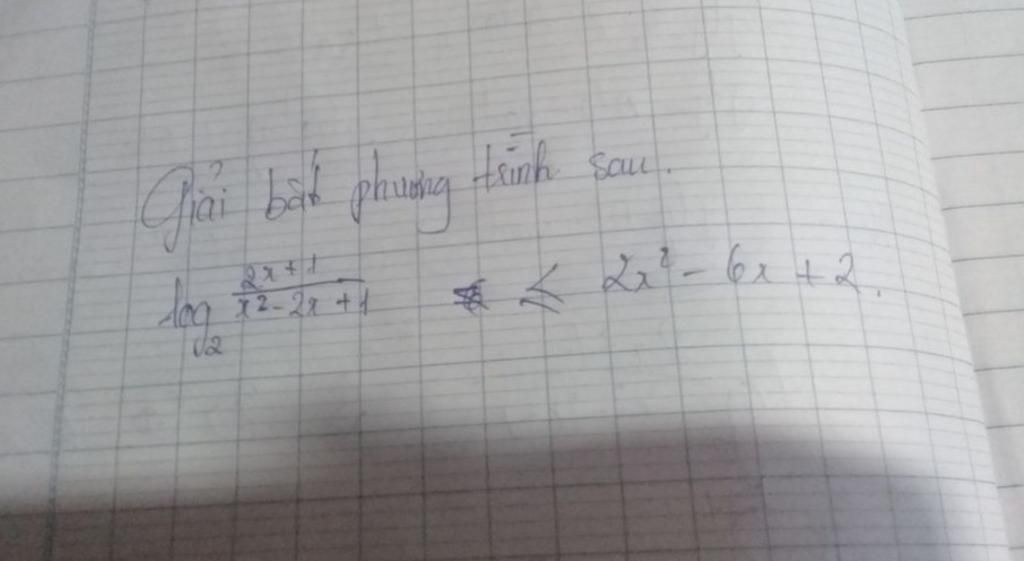 Giải bất phương trình sau.
log₂ (2x + 1)/(x² - 2x + 1) ≤ 2x² - 6x + 2.